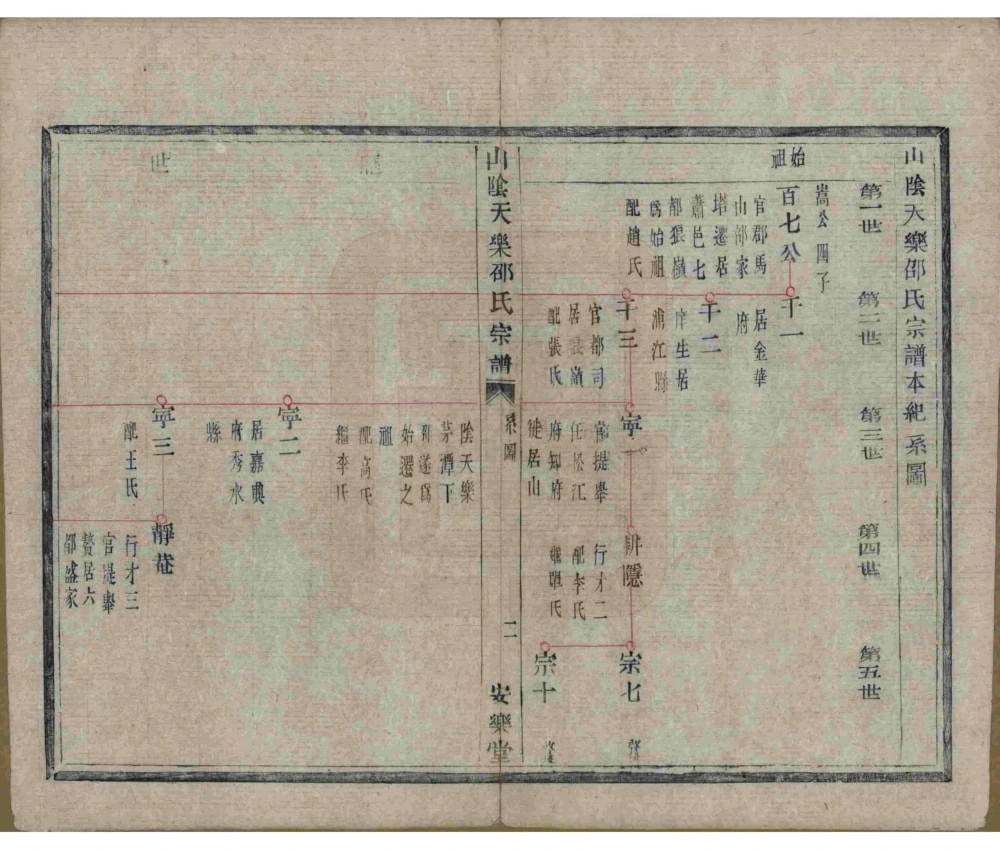 山陰天樂邵氏宗譜本紀系圖
第一世
第二世
第三世
第四世
第五世
始祖
嵩公四子
百七公
官郡馬
山邵家
塔遷居
蕭邑七
都猥嶺
爲始祖
配趙氏
千一
居金華
府
千二
庠生居
浦江縣
千三
官都司
居猥嶺
配張氏
寧一
官提舉
任松江
府知府
徙居山
耕隱
行才二
配李氏
繼單氏
宗七
宗十
山陰天樂邵氏宗譜
系圖
二
安樂堂
陰天樂
茅潭下
邵遂爲
始遷之
祖
配高氏
繼李氏
寧二
居嘉興
府秀水
縣
寧三
配王氏
靜菴
行才三
官提舉
贅居六
都盛家